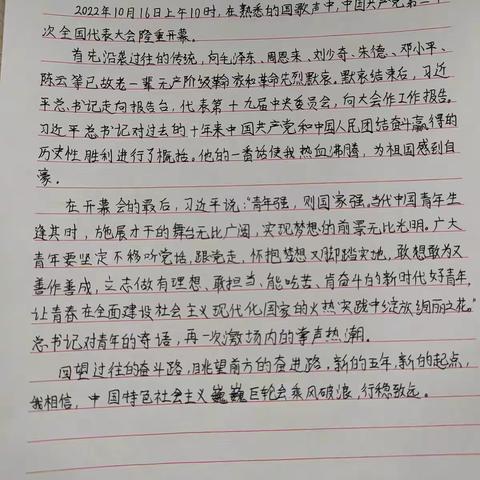 2022年10月16日上午10时,在熟悉的国歌声中,中国共产党第二十
次全国代表大会隆重开幕。
首先沿袭过往的传统,向毛泽东、周恩来、刘少奇、朱德、邓小平、
陈云等已故老一辈无产阶级革命家和革命先烈默哀。默哀结束后,习近
平总书记走向报告台,代表第十九届中央委员会,向大会作工作报告。
习近平总书记对过去的十年来中国共产党和中国人民团结奋斗赢得的
历史性胜利进行了概括。他的一番话使我热血沸腾,为祖国感到自
豪。
在开幕会的最后,习近平说:“青年强,则国家强。当代中国青年生
逢其时,施展才干的舞台无比广阔,实现梦想的前景无比光明。广大
青年要坚定不移听党话,跟党走,怀抱梦想又脚踏实地,敢想敢为又
善作善成,立志做有理想、敢担当、能吃苦、肯奋斗的新时代好青年,
让青春在全面建设社会主义现代化国家的火热实践中绽放绚丽之花。”
总书记对青年的寄语,再一次激场内的掌声热潮。
回望过往的奋斗路,眺望前方的奋进路,新的五年,新的起点,
我相信,中国特色社会主义巍巍巨轮会乘风破浪,行稳致远。